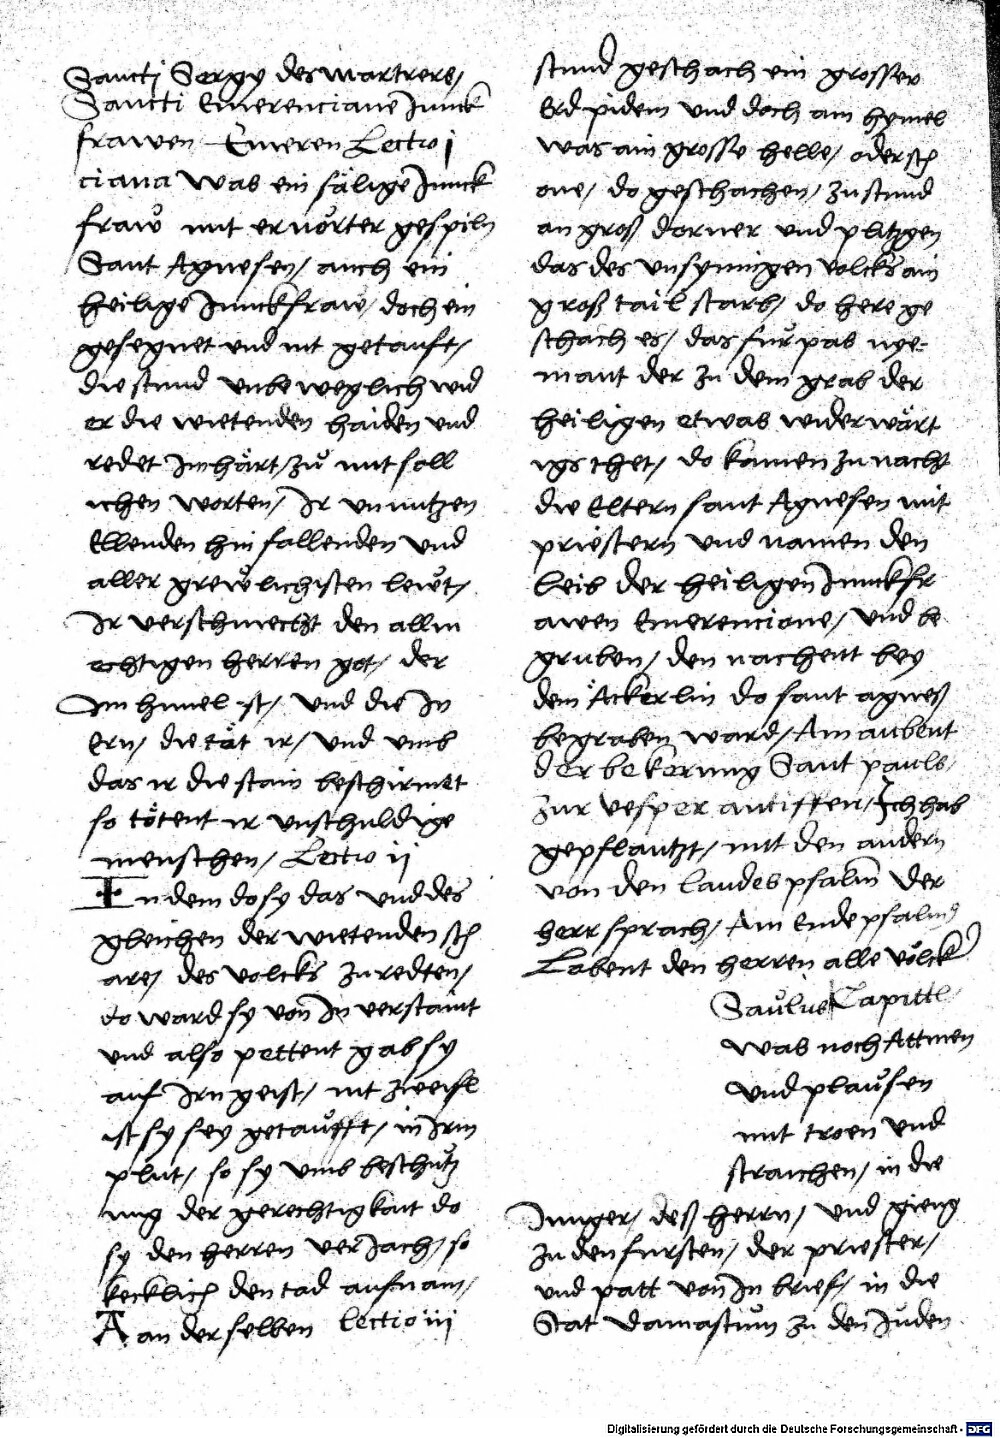 Sancti Sergy des martrers/
Sancti Emerenciane Junck
frawen Emeren Lectio j
ciana was ein sälige Junck
fraw mit erwörter gespiln
Sant Agnesen/ auch ein
heilige Junckfraw/ doch ein
gesegnet und nit getaufft/
die stund unbeweglich wid
er die wietenden haiden und
redet Im härt/ zů mit soll
ichen worten/ Ir unnutzen
Ellenden hin fallenden und
aller grewlichisten lewt/
Ir verschmecht den allm
echtigen herren got/ der
Im himel ist/ und die In
Ern/ die tät ir/ und umb
das ir die stain beschirmet
so tötent ir unschuldige
menschen/ Lectio ij
In dem do sy das und des
gleichen der wietenden sch
are/ des volcks zu redten/
do ward sy von In verstaint
und also pettent gab sy
auf Irn geist/ nit zweifl
ist sy sey getaufft/ in Irm
plut/ so sy umb beschutz
ung der gerechtigkait do
sy den herren verJach/ so
kecklich den tod aufnam/
A an der selben lectio iij
stund geschach ein grosser
Erdpidem und doch am hymel
was ain grosse helle/ oder sch
one/ do geschachen/ zu stund
an groß dorner und platzgen
das des unsynnigen volcks ain
groß tail starb/ do here ge
schach es/ das furpas nye-
mant der zu dem grab der
heiligen etwas widerwärt
igs thet/ do komen zu nacht
die Eltern sant Agnesen mit
priestern und namen den
leib der heiligen Junckfr
awen Emerencione/ und be
gruben/ den nachent bey
dem Äckerlin do sant agneß
begraben ward/ Am aubent
der bekerung Sant pauls/
zur vesper antiffen/ Ich hab
gepflantzt/ mit den andern
von den laudes psalm der
herr sprach/ Am Ende psalmus
Lobent den herren alle völcker
Saulus Capittl
was noch Attmen
und plausen
mit troen und
straichen/ in die
Junger/ deß herrn/ und gieng
zu den fursten/ der priester/
und patt von In brief/ in die
Stat Damascum zu den Juden
Digitalisierung gefördert durch die Deutsche Forschungsgemeinschaft - DFG